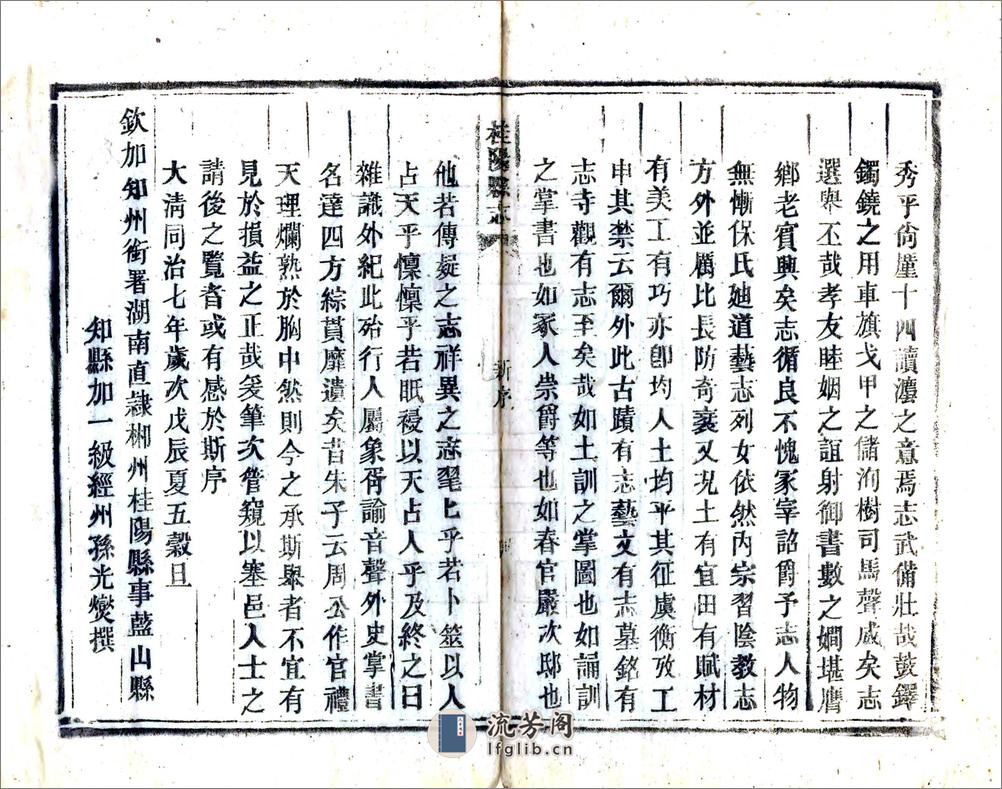 秀乎尙撞十四讀灋之意焉志武備壯哉鼓鐸
鐲鐃之用車旗戈甲之儲洵樹司馬聲威矣志
選舉丕哉孝友睦姻之誼射御書數之嫺堪膺
鄉老賓興矣志循良不愧冢宰詔爵予志人物
無慚保氏廸道藝志列女依然內宗習陰敎志
方外並鴈比長防奇衺又況土有宜田有賦材
有美工有巧亦卽均人土均平其征虞衡攷工
申其禁云爾外此古蹟有志藝文有志墓銘有
志寺觀有志至矣哉如土訓之掌圖也如誦訓
之掌書也如冢人崇爵等也如春官嚴次邸也
桂陽縣志
新序
他若傳疑之志祥異之志毣匕乎若卜筮以人
占天乎懍乎若眂祲以天占人乎及終之曰
雜識外紀此殆行人屬象胥諭音聲外史掌書
名達四方綜貫靡遺矣昔朱子云周公作官禮
天理爛熟於胸中然則今之承斯舉者不宜有
見於損益之正哉爰筆次管窺以塞邑人士之
請後之覽者或有感於斯序
大淸同治七年歲次戊辰夏五穀旦
欽加知州銜署湖南直隷郴州桂陽縣事藍山縣
知縣加一級經州孫光燮撰
流芳阁
lfglib.cn